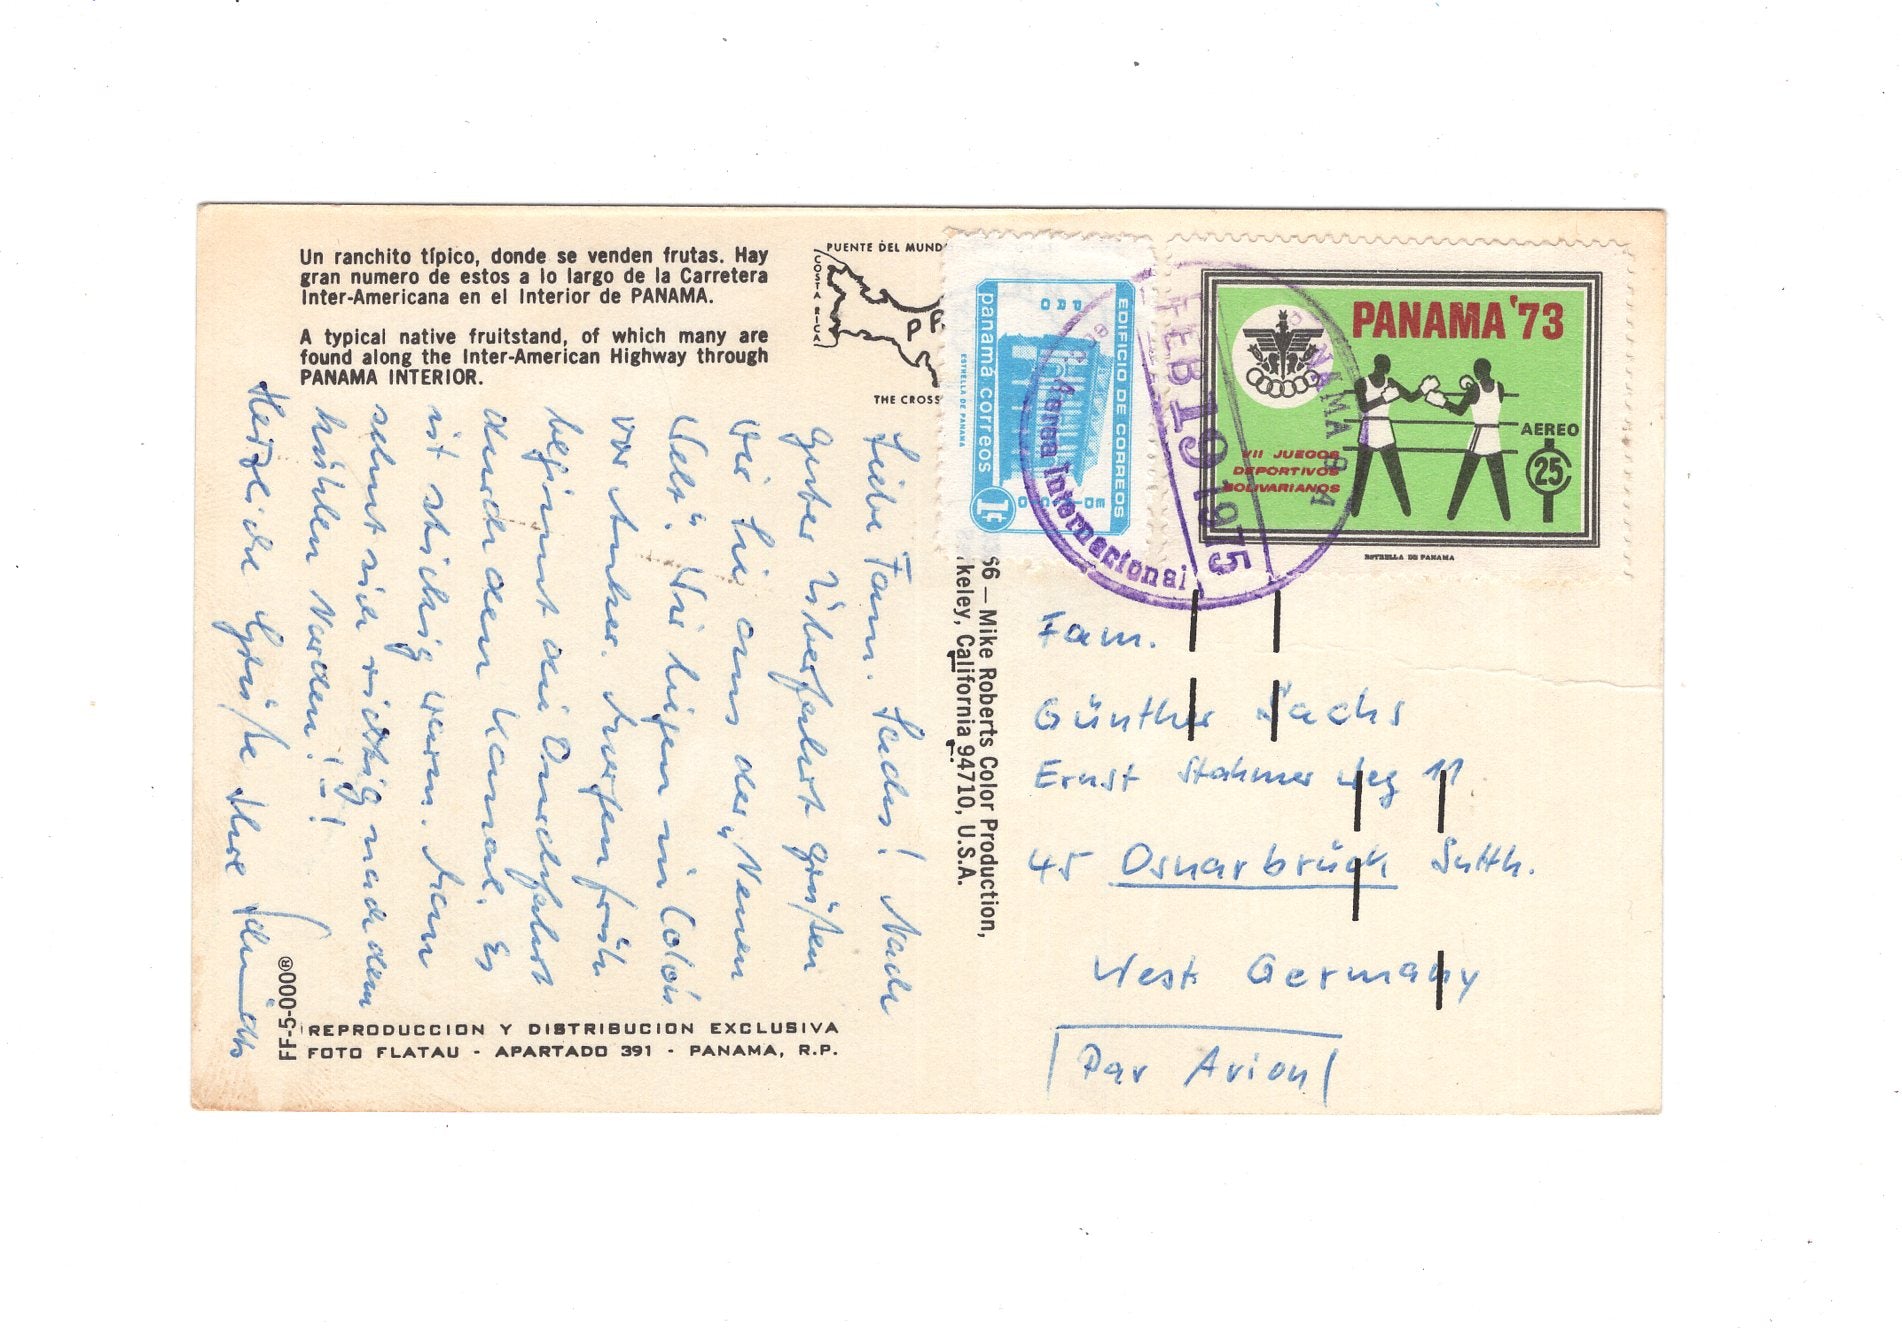 Un ranchito típico, donde se venden frutas. Hay
gran numero de estos a lo largo de la Carretera
Inter-Americana en el Interior de PANAMA.
A typical native fruitstand, of which many are
found along the Inter-American Highway through
PANAMA INTERIOR.
PUENTE DEL MUND
COSTA RICA
THE CROSS
Liebe Fam. Sachs! Nach
guter Überfahrt grüßen
wir Sie aus der „Neuen
Welt“. Wir liegen in Colón
vor Anker. Morgen früh
beginnt die Durchfahrt
durch den Kanal. Es
ist stickig warm. Man
sehnt sich richtig nach dem
kühlen Norden!-!
Herzliche Grüße Ihre
FF-5-000®
REPRODUCCION Y DISTRIBUCION EXCLUSIVA
FOTO FLATAU - APARTADO 391 - PANAMA, R.P.
66 — Mike Roberts Color Production,
keley, California 94710, U.S.A.
EDIFICIO DE CORREOS
panamá correos
1¢
ESTRELLA DE PANAMA
PANAMA '73
VII JUEGOS
DEPORTIVOS
BOLIVARIANOS
AEREO
25
ESTRELLA DE PANAMA
FEB 19 1975
PANAMA
Aerea Internacional
Fam.
Günther Sachs
Ernst Stahmer Weg 11
45 Osnarbrück Sutth.
West Germany
Par Avion